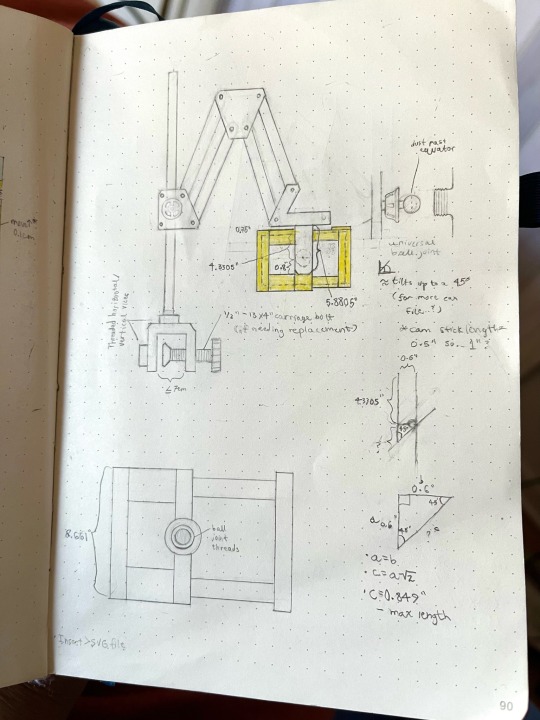 just past
equator
0.75"
4.3305"
5.8805"
universal
ball joint
≈ tilts up to a 45°
(for more can
file..?)
* cam stick length ≈
0.5" so... 1"?
threaded horizontal/
vertical vise
1/2" - 13 x 4" carriage bolt
(if needing replacement)
≤ 7cm
0.6"
4.3305"
45°
?
8.661
ball
joint
threads
b
0.6"
a
0.6"
45°
45°
? c
• a=b
• c=a√2
• C=0.849"
- max length
Insert > SVG file
90